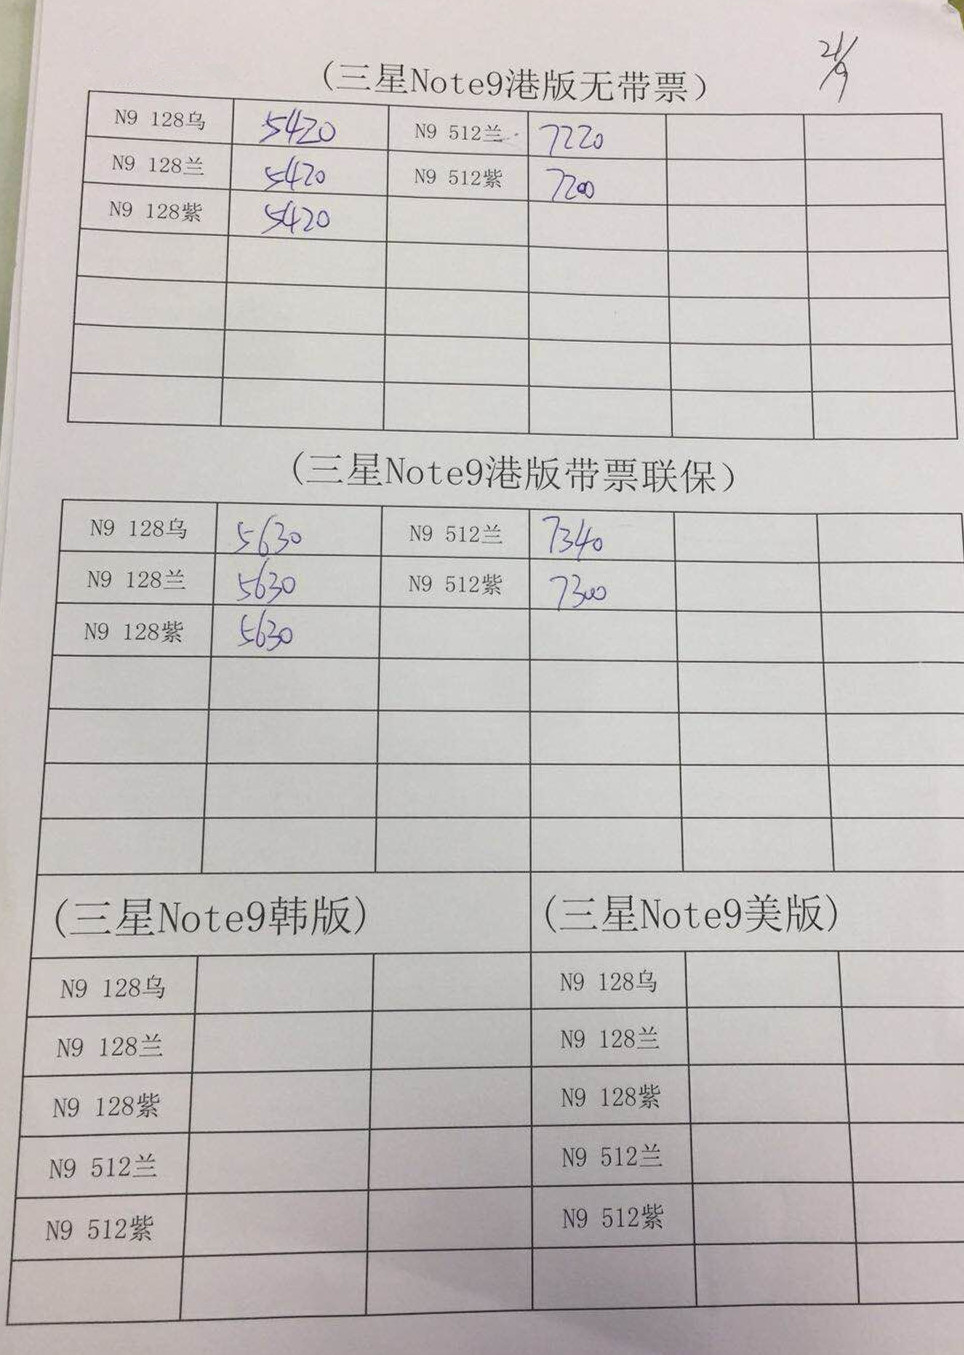 21/9
(三星Note9港版无带票)
N9 128乌 5420 N9 512兰 7220
N9 128兰 5420 N9 512紫 7200
N9 128紫 5420
(三星Note9港版带票联保)
N9 128乌 5630 N9 512兰 7340
N9 128兰 5630 N9 512紫 7300
N9 128紫 5630
(三星Note9韩版) (三星Note9美版)
N9 128乌 N9 128乌
N9 128兰 N9 128兰
N9 128紫 N9 128紫
N9 512兰 N9 512兰
N9 512紫 N9 512紫